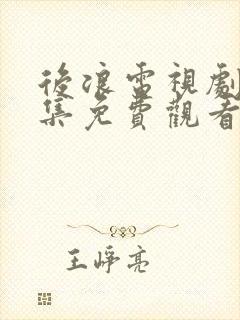 後浪電視劇
集免費觀看
王崢亮